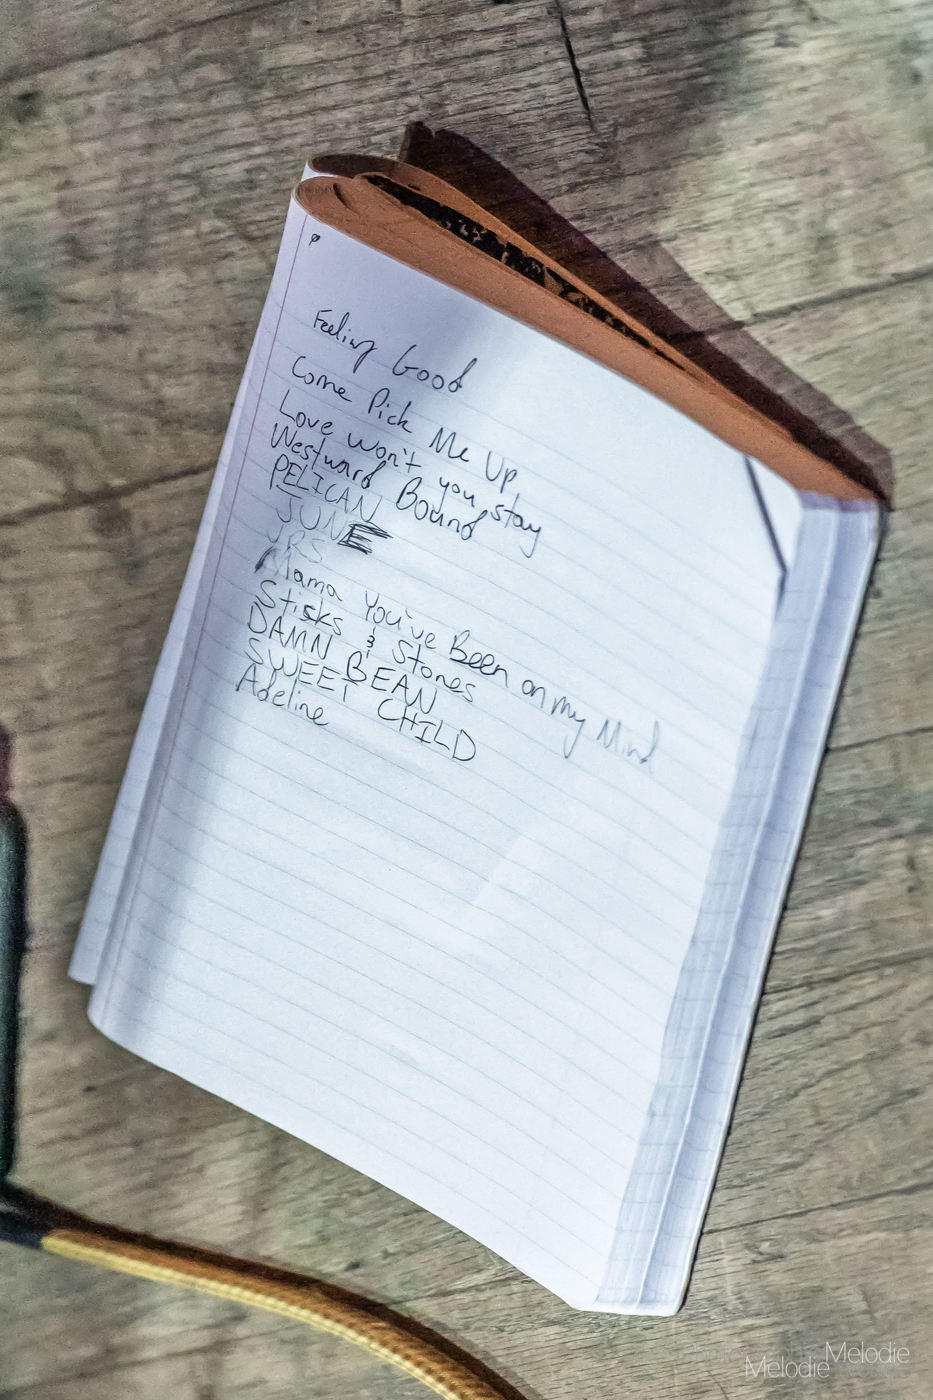 Feeling Good
Come Pick Me Up
Love won't you stay
Westward Bound
PELICAN
JUNE
JRS
Mama You've Been on my Mind
Sticks & Stones
DAMN BEAN
SWEET CHILD
Adeline
Melodie
Melodie